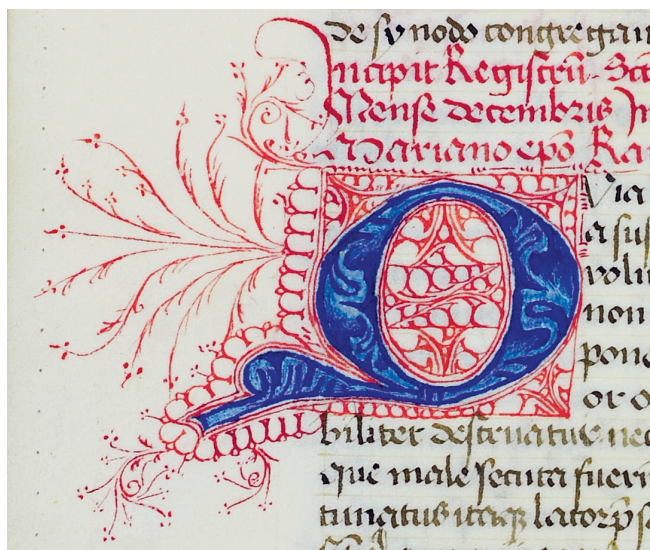 de synodo congregan
Incipit Registrũ Sct
Mense decembris In
Mariano ep̃o Ra
Quia
a sus
volu
non
pone
or o
biliter destruatur nec
que male secuta fueri
tunatus itaqꝫ latorp̃s